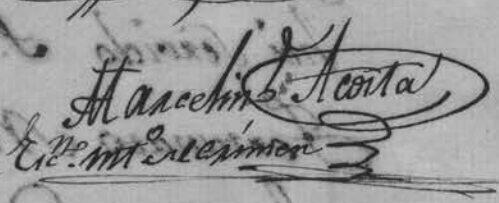 Marcelino Acosta
Esc.no int.o del crimen